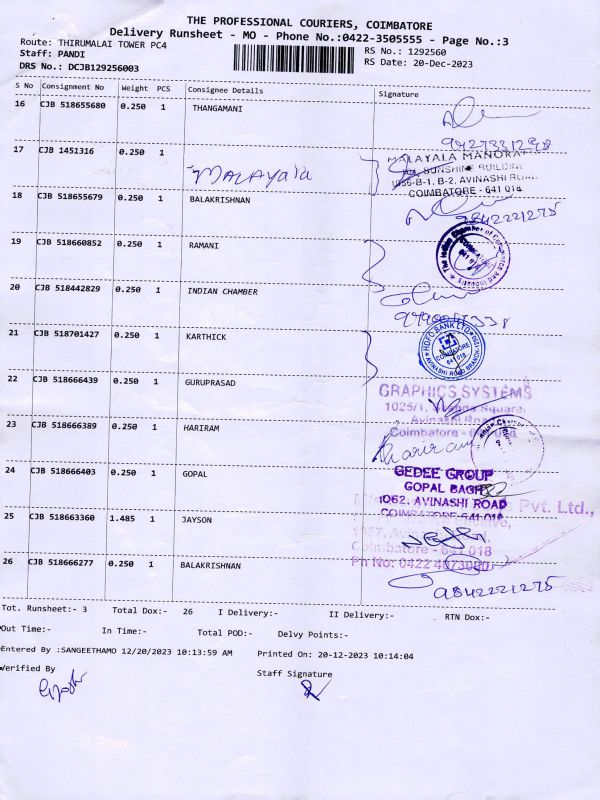 THE PROFESSIONAL COURIERS, COIMBATORE
Delivery Runsheet - MO - Phone No.:0422-3505555 - Page No.:3
Route: THIRUMALAI TOWER PC4 RS No.: 1292560
Staff: PANDI RS Date: 20-Dec-2023
DRS No.: DCJB129256003
S No Consignment No Weight PCS Consignee Details Signature
16 CJB 518655680 0.250 1 THANGAMANI
17 CJB 1451316 0.250 1 MALAYALA MANORAMA
Malayala SUNSHINE BUILDING
1055-B-1, B-2, AVINASHI ROAD
COIMBATORE - 641 018
18 CJB 518655679 0.250 1 BALAKRISHNAN
9842221275
19 CJB 518660852 0.250 1 RAMANI
20 CJB 518442829 0.250 1 INDIAN CHAMBER
21 CJB 518701427 0.250 1 KARTHICK
HDFC BANK LTD
COIMBATORE
641 018
AVINASHI ROAD BRANCH
22 CJB 518666439 0.250 1 GURUPRASAD
GRAPHICS SYSTEMS
1025/1, Square,
Avinashi Road
Coimbatore - 641 018
23 CJB 518666389 0.250 1 HARIRAM
Hariram
24 CJB 518666403 0.250 1 GOPAL
GEDEE GROUP
GOPAL BAGH
1062, AVINASHI ROAD
COIMBATORE-641 018
Pvt. Ltd.,
25 CJB 518663360 1.485 1 JAYSON
Coimbatore - 641 018
Ph No: 0422
26 CJB 518666277 0.250 1 BALAKRISHNAN
9842221275
Tot. Runsheet:- 3 Total Dox:- 26 I Delivery:- II Delivery:- RTN Dox:-
Out Time:- In Time:- Total POD:- Delvy Points:-
Entered By :SANGEETHAMO 12/20/2023 10:13:59 AM Printed On: 20-12-2023 10:14:04
Verified By Staff Signature